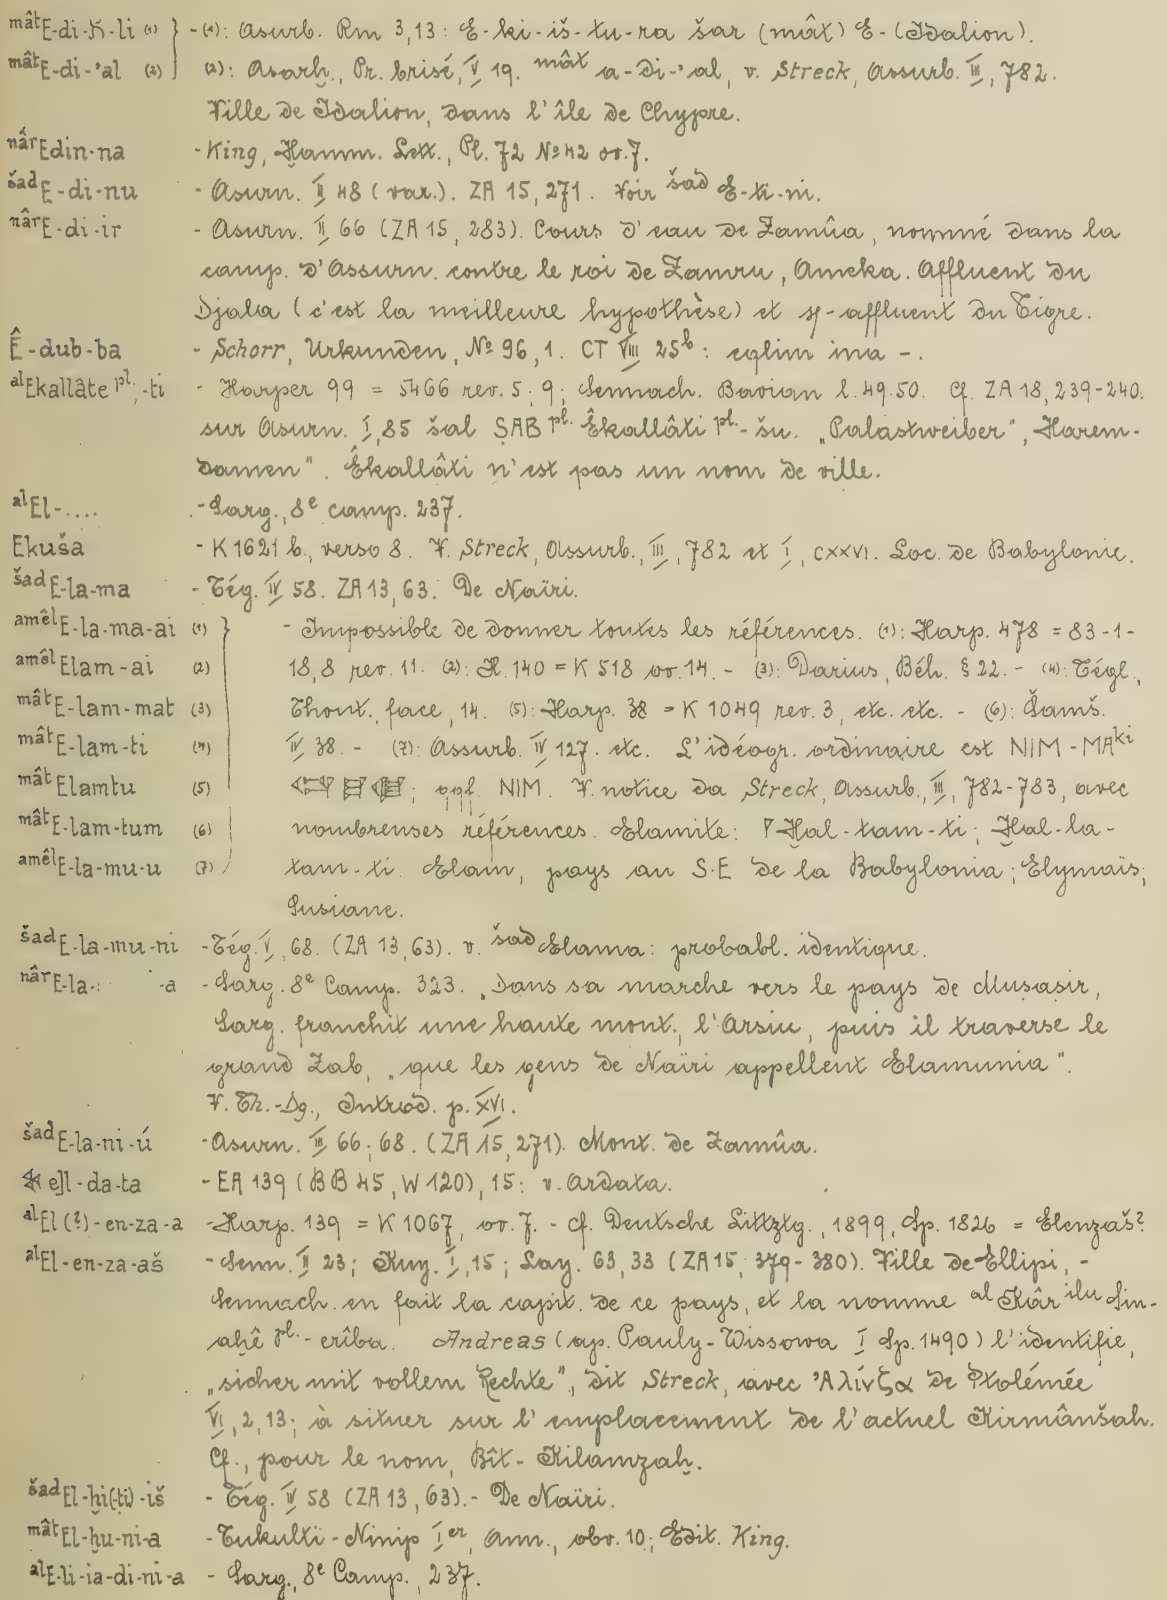 mâtE-di-'i-li (1) } - (1): Asurb. Rm 3,13: E-ki-iš-tu-ra šar (mât) E- (Idalion).
mâtE-di-'al (2) (2): Asarḫ., Pr. brisé, V 19. mât a-di-'al, v. Streck, Assurb. III, 782.
Ville de Idalion, dans l'île de Chypre.
nârEdin-na - King, Ḫamm. Lett., Pl. 72 № 42 ov. 7.
šadE-di-nu - Asurn. II 48 (var.). ZA 15,271. Voir šad E-ti-ni.
nârE-di-ir - Asurn. II 66 (ZA 15, 283). Cours d'eau de Zamûa, nommé dans la
camp. d'Assurn. contre le roi de Zamru, Ameka. Affluent du
Djala (c'est la meilleure hypothèse) et s/-affluent du Tigre.
Ê-dub-ba - Schorr, Urkunden, № 96,1. CT VIII 25b: eqlim ina -.
alEkallâte pl.-ti - Harper 99 = 5466 rev. 5; 9; Sennach. Bavian l. 49.50. Cf. ZA 18, 239-240.
sur Asurn. I, 85 šal ṢAB pl. Êkallâti pl.-šu. „Palastweiber", Harem-
damen". Êkallâti n'est pas un nom de ville.
alEl-.... - Sarg., 8e camp. 237.
Ekuša - K 1621 b, verso 8. V. Streck, Assurb., III, 782 et I, CXXVI. Loc. de Babylonie.
šadE-la-ma - Tég. IV 58. ZA 13, 63. De Naïri.
amêlE-la-ma-ai (1) } - Impossible de donner toutes les références. (1): Harp. 478 = 83-1-
amêlElam-ai (2) 18,8 rev. 11. (2): H. 140 = K 518 ov. 14. - (3): Darius, Béh. § 22. - (4): Tégl.,
mâtE-lam-mat (3) Thont. face, 14. (5): Harp. 38 = K 1049 rev. 3, etc. etc. - (6): Šamš.
mâtE-lam-ti (4) IV 38. - (7): Assurb. IV 127. etc. L'idéogr. ordinaire est NIM-MAki
mâtElamtu (5) ; NIM. V. notice da Streck, Assurb., III, 782-783, avec
mâtE-lam-tum (6) nombreuses références. Elamite: Ḫal-tam-ti; Ḫal-la-
amêlE-la-mu-u (7) tam-ti. Elam, pays au S.E de la Babylonia; Elymaïs;
Susiane.
šadE-la-mu-ni - Tég. V, 68. (ZA 13, 63). v. šadElama: probabl. identique.
nârE-la-: -a - Sarg. 8e Camp. 323. „Dans sa marche vers le pays de Musasir,
Sarg. franchit une haute mont., l'Arsiu, puis il traverse le
grand Zab, „que les gens de Naïri appellent Elamunia".
V. Th.-Dg., Introd. p. XVI.
šadE-la-ni-ú - Asurn. III 66; 68. (ZA 15, 271). Mont. de Zamûa.
e]l-da-ta - EA 139 (BB 45, W 120), 15: v. Ardata.
alEl (?)-en-za-a - Harp. 139 = K 1067, ov. 7. - Cf. Deutsche Littztg., 1899, Sp. 1826 = Elenzaš?
alEl-en-za-aš - Senn. II 23; Kuy. I, 15; Lay. 63, 33 (ZA 15; 379-380). Ville de Ellipi, -
Sennach. en fait la capit. de ce pays, et la nomme al Kâr ilu Sin-
aḫê pl.-erîba. Andreas (ap. Pauly-Wissowa I Sp. 1490) l'identifie,
„sicher mit vollem Rechte", dit Streck, avec 'Αλίνζα de Ptolémée
VI, 2, 13; à situer sur l'emplacement de l'actuel Kirmânšah.
Cf., pour le nom, Bît-Kilamzaḫ.
šadEl-ḫi(-ti)-iš - Tég. IV 58 (ZA 13, 63).- De Naïri.
mâtEl-ḫu-ni-a - Tukulti-Ninip Ier, Ann., obv. 10; Edit. King.
alE-li-ia-di-ni-a - Sarg., 8e Camp., 237.